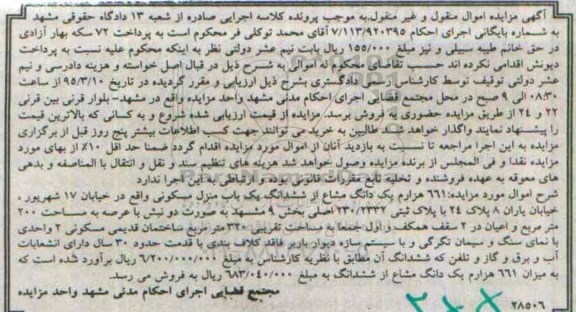 آگهی مزایده اموال منقول و غیر منقول.به موجب پرونده کلاسه اجرایی صادره از شعبه ۱۳ دادگاه حقوقی مشهد
به شماره بایگانی اجرای احکام ۷/۱۱۳/۹۲۰۳۹۵ آقای محمد توکلی فر محکوم است به پرداخت ۷۲ سکه بهار آزادی
در حق خانم طیبه سبیلی و نیز مبلغ ۱۵۵/۰۰۰ ریال بابت نیم عشر دولتی نظر به اینکه محکوم علیه نسبت به پرداخت
دیونش اقدامی نکرده اند حسب تقاضای محکوم له اموالی به شرح ذیل در قبال اصل خواسته و هزینه دادرسی و نیم
عشر دولتی توقیف توسط کارشناس رسمی دادگستری بشرح ذیل ارزیابی و مقرر گردیده در تاریخ ۹۵/۳/۱۰ از ساعت
۰۸:۳۰ الی ۹ صبح در محل مجتمع قضایی اجرای احکام مدنی مشهد واحد مزایده واقع در مشهد- بلوار قرنی بین قرنی
۲۲ و ۲۴ از طریق مزایده حضوری به فروش برسد. مزایده از قیمت ارزیابی شده شروع و به کسانی که بالاترین قیمت
را پیشنهاد نمایند واگذار خواهد شد طالبین به خرید می توانند جهت کسب اطلاعات بیشتر پنج روز قبل از برگزاری
مزایده به این اجرا مراجعه تا نسبت به بازدید آنان از اموال مورد مزایده اقدام گردد ضمنا حد اقل ۱۰٪ از بهای مورد
مزایده نقدا و فی المجلس از برنده مزایده وصول خواهد شد هزینه های تنظیم سند و نقل و انتقال با المناصفه و بدهی
های معوقه به عهده فروشنده و تخلیه تابع مقررات قانونی بوده و ارتباطی به این اجرا ندارد
شرح اموال مورد مزایده:۶۶۱ هزارم یک دانگ مشاع از ششدانگ یک باب منزل مسکونی واقع در خیابان ۱۷ شهریور ،
خیابان یاران ۸ پلاک ۲۴ با پلاک ثبتی ۲۳۰/۲۳۳۲ اصلی بخش ۹ مشهد به صورت دو نبش با عرصه به مساحت ۲۰۰
متر مربع و اعیان در ۲ سقف همکف و اول جمعا به مساحت تقریبی ۳۲۰ متر مربع ساختمان قدیمی مسکونی ۲ واحدی
با نمای سنگ و سیمان تگرگی و با سیستم سازه دیوار باربر فاقد کلاف بندی با قدمت حدود ۳۰ سال دارای انشعابات
آب و برق و گاز و تلفن که ششدانگ آن مطابق با نظریه کارشناس به مبلغ ۶/۲۰۰/۰۰۰/۰۰۰ ریال برآورد شده است که
به میزان ۶۶۱ هزارم یک دانگ مشاع از ششدانگ به مبلغ ۶۸۳/۰۴۰/۰۰۰ ریال به فروش می رسد.
مجتمع قضایی اجرای احکام مدنی مشهد واحد مزایده
۲۸۵۰۶